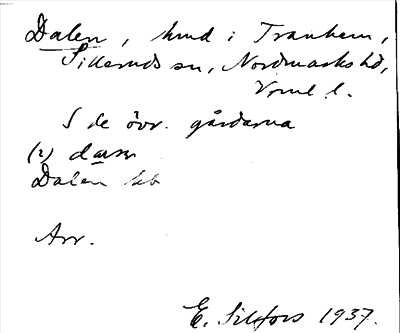 Dalen, hmd i Tranhem,
Silleruds sn, Nordmarks hd,
Vrml. l.
S de övr. gårdarna
(2) dalen
Dalen kb
Arr.
E. Sillfors 1937.